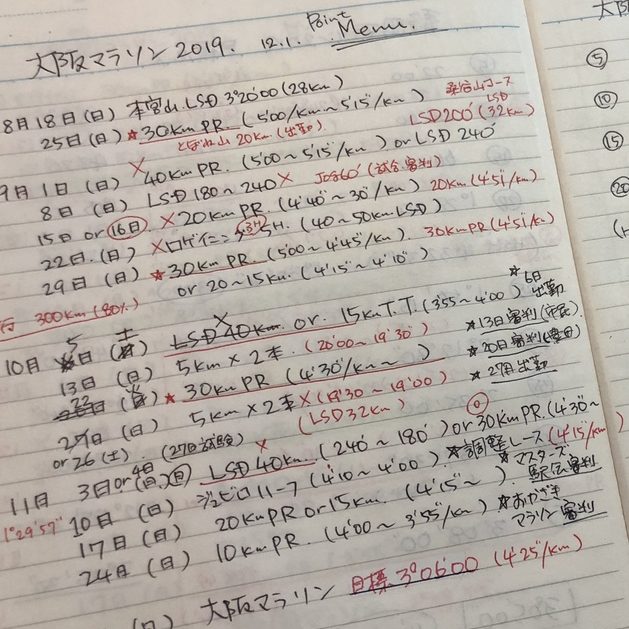 大阪マラソン 2019. 12.1. Point Menu.
8月18日(日) 本宮山 LSD 3°20'00 (28km)
25日(日) ★30km PR. (5'00/km~5'15"/km)
LSD200' (32km)
20km (出勤)
9月1日(日) × 40km PR. (5'00~5'15"/km) or LSD 240'
8日(日) LSD 180~240 × JOG60' (試合審判)
15日 or 16日 × 20km PR. (4'40"~30"/km) 20km (4'51/km)
22日.(日) × ロゲイニング (40~50km LSD)
29日(日) ★30km PR. (5'00~4'45"/km). 30km PR (4'51/km)
or 20~15km. (4'15"~4'10")
300km (80%)
10月 5日(土) × LSD 40km. or. 15km T.T. (3'55~4'00) ★6日 出勤
13日(日) 5km×2本. (20'00~19'30") ★13日審判(市民)
22日 ★30km PR (4'30"/km~ ) ★20日審判(豊田)
27日(日) 5km×2本 × (19'30~19'00) ★27日出勤
or 26(土). (27日試験) × (LSD 32km)
11月 3日 or 4日(月)(日) LSD 40km. (240'~180') or 30km PR. (4'30"~
10日(日) ジュビロハーフ (4'10~4'00). ★調整レース (4'15/km)
1°29'57"
17日(日) 20km PR or 15km (4'15"~ ). ★マスターズ駅伝審判
24日(日) 10km PR. (4'00~3'55"/km) ★おかざきマラソン審判
(日) 大阪マラソン 目標 3°06'00 (4'25"/km)
⑤
⑩
⑮
⑳